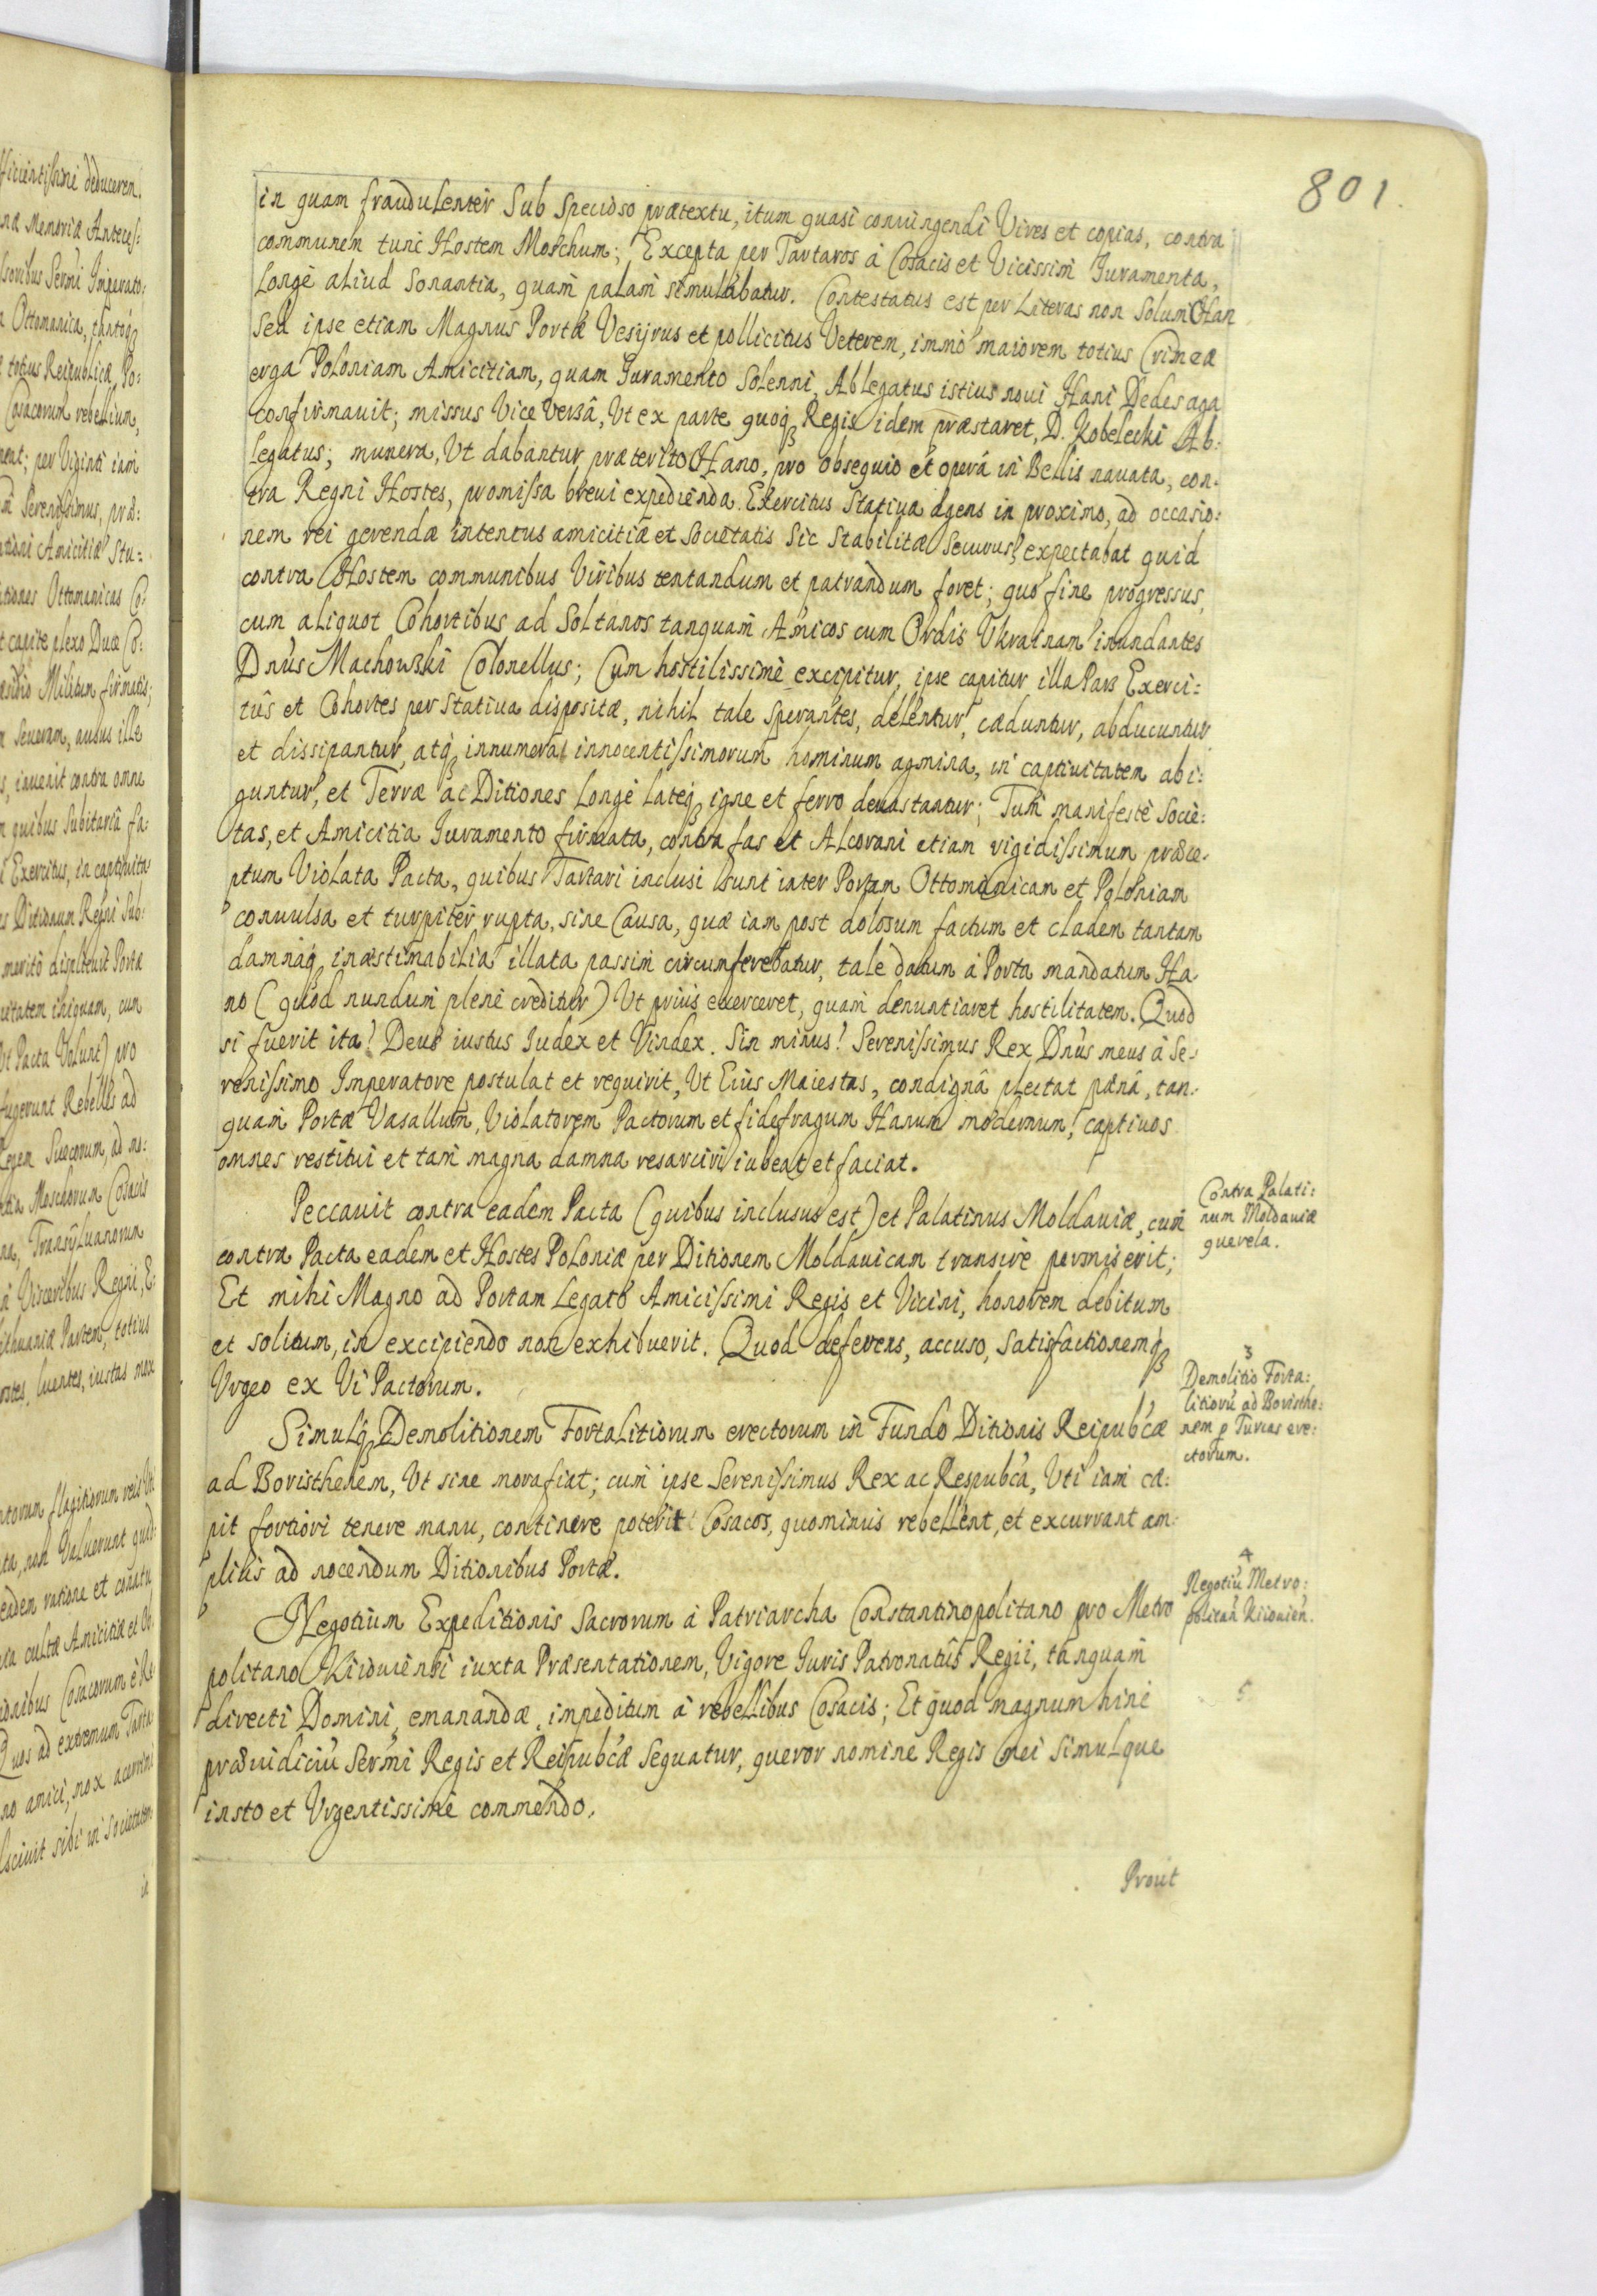 801.
in quam fraudulenter Sub Specioso prætextu, itum quasi coniungendi Vires et copias, contra
communem tunc Hostem Moschum; Excepta per Tartaros à Cosacis et Vicissim Iuramenta,
Longè aliud Sonantia, quam palam simulabatur. Contestatus est per Literas non Solum Han
Sed ipse etiam Magnus Portæ Vesyrus et pollicitus Veterem, immò maiorem totius Crimeæ
erga Poloniam Amicitiam, quam Iuramento Solenni, Ablegatus istius noui Hani Dedes aga
confirmauit; missus Vice Versâ, Ut ex parte quoqꝫ Regis idem præstaret, D. Kobelecki Ab:
legatus; munera, Ut dabantur præterito Hano, pro obsequio et operâ in Bellis nauata, con-
tra Regni Hostes, promissa breui expedienda. Exercitus Statiua agens in proximo, ad occasio:
nem rei gerendæ intentus amicitiæ et Societatis Sic Stabilitæ Securus! expectabat quid
contra Hostem communibus Viribus tentandum et patrandum foret; quò fine progressus,
cum aliquot Cohortibus ad Soltanos tanquam Amicos cum Ordis Ukrainam inundantes
Dnus Machowski Colonellus; Cum hostilissimè excipitur, ipse capitur illa Pars Exerci:
tûs et Cohortes per Statiua dispositæ, nihil tale Sperantes, delentur, cæduntur, abducuntur
et dissipantur, atqꝫ innumera innocentissimorum hominum agmina, in captiuitatem abi:
guntur, et Terræ ac Ditiones Longè Lateqꝫ igne et ferro deuastantur; Tum manifestè Socie:
tas, et Amicitia Iuramento firmata, contra fas et Alcorani etiam rigidissimum præce-
ptum Violata Pacta, quibus Tartari inclusi Sunt inter Portam Ottomanicam et Poloniam
conuulsa et turpiter rupta, sine Causa, quæ iam post dolosum factum et cladem tantam
damnaqꝫ inæstimabilia illata passim circumferebatur, tale datum à Porta mandatum Ha-
no (quòd nundum plenè creditur) Ut prius exerceret, quam denuntiaret hostilitatem. Quod
si fuerit ita! Deus iustus Iudex et Vindex. Sin minus! Serenissimus Rex Dnus meus à Se-
renissimo Imperatore postulat et requirit, Ut Eius Maiestas, condignâ plectat pænâ, tan-
quam Portæ Vasallum, Violatorem Pactorum et fidefragum Hanum modernum! captiuos
omnes restitui et tam magna damna resarciri iubeat et faciat.
Peccauit contra eadem Pacta (quibus inclusus est) et Palatinus Moldauiæ, cum
contra Pacta eadem et Hostes Poloniæ per Ditionem Moldauicam transire permiserit;
Et mihi Magno ad Portam Legato Amicissimi Regis et Vicini, honorem debitum
et solitum, in excipiendo non exhibuerit. Quod deferens, accuso, Satisfactionemqꝫ
Urgeo ex Vi Pactorum.
Contra Palati:
num Moldauiæ
querela.
Simulqꝫ Demolitionem Fortalitiorum erectorum in Fundo Ditionis Reipubcæ
ad Boristhenem, Ut sine mora fiat; cum ipse Serenissimus Rex ac Respubca, Uti iam cæ:
pit fortiori tenere manu, continere poterit Cosacos, quominus rebellent, et excurrant am-
plius ad nocendum Ditionibus Portæ.
3
Demolitio Forta:
litiorũ ad Boristhe:
nem p Turcas ere:
ctorum.
Negotium Expeditionis Sacrorum à Patriarcha Constantinopolitano pro Metro
politano Kiiouiensi iuxta Præsentationem, Vigore Iuris Patronatûs Regii, tanquam
directi Domini, emanandæ, impeditum à rebellibus Cosacis; Et quod magnum hinc
præiudiciũ Sermi Regis et Reipubcæ Sequatur, queror nomine Regis mei Simulque
insto et Urgentissimè commendo.
4
Negotiũ Metro:
politan Kiiouien.
5
Prout